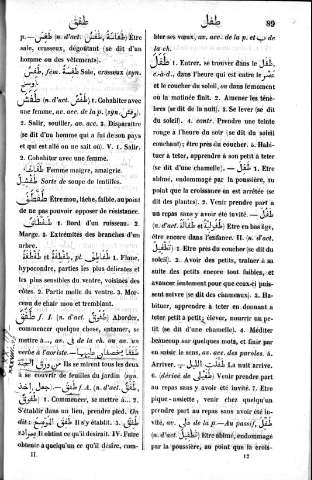 طفق
طفل
89
p. — طَفِسٌ (n. d'act. طَفَسٌ, طَفَاسَةٌ) Etre
sale, crasseux, dégoûtant (se dit d'un
homme ou des vêtements).
طَفِسٌ, fém. طَفِسَةٌ Sale, crasseux (syn.
طَفَشَ (n. d'act. طَفْشٌ) 1. Cohabiter avec
une femme, av. acc. de la p. (syn.
2. Salir, souiller, av. acc. 3. Disparaître
(se dit d'un homme qui a fui de son pays
et qui est allé on ne sait où). V. 1. Salir.
2. Cohabiter avec une femme.
Femme maigre, amaigrie.
Sorte de soupe de lentilles.
Etre mou, lâche, faible, au point
de ne pas pouvoir opposer de résistance.
1. Bord d'un ruisseau. 2.
Marge. 3. Extrémités des branches d'un
arbre.
طَفْطَفَةٌ, pl. 1. Flanc,
hypocondre, parties les plus délicates et
les plus sensibles du ventre, voisines des
côtes. 2. Partie molle du ventre. 3. Mor-
ceau de chair mou et tremblant.
طَفِقَ f. I. (n. d'act. طَفْقٌ) Aborder,
commencer quelque chose, entamer, se
mettre à..., av. ب de la ch. ou av. un
verbe à l'aoriste.
Ils se mirent tous les deux
à se couvrir de feuilles du jardin (ses deux
طَفِقَ f. A. (n. d'act.
1. Commencer, se mettre à... 2.
S'établir dans un lieu, prendre pied. On
dit: طَفِقَ المَوْضِعَ Il s'y établit. 3. طَفِقَ
Il obtint ce qu'il désirait. IV. Faire
obtenir à quelqu'un ce qu'il désire, com-
II.
bler ses vœux, av. acc. de la p. et ب de
la ch.
طَفَلَ 1. Entrer, se trouver dans le طَفَل,
c.-à-d., dans l'heure qui est entre عَصْر
et le coucher du soleil, ou dans le moment
où la matinée finit. 2. Amener les ténè-
bres (se dit de la nuit). 3. Se lever (se dit
du soleil). 4. contr. Prendre une teinte
rouge à l'heure du soir (se dit du soleil
couchant); être près du coucher. 5. Habi-
tuer à teter, apprendre à son petit à teter
(se dit d'une chamelle). — طَفِلَ 1. Etre
abîmé, endommagé par la poussière, au
point que la croissance en est arrêtée (se
dit des plantes). 2. Venir prendre part à
un repas sans y avoir été invité. — طَفُلَ
(n. d'act. طَفَالَةٌ et طُفُولَةٌ) Etre en bas âge,
être encore dans l'enfance. II. (n. d'act.
تَطْفِيلٌ) 1. Etre près du coucher (se dit du
soleil). 2. Avoir des petits, traîner à sa
suite des petits encore tout faibles, et
avancer lentement pour que ceux-ci puis-
sent suivre (se dit des chameaux). 3. Ha-
bituer, apprendre à teter en donnant à
teter petit à petit; élever, nourrir un pe-
tit (se dit d'une chamelle). 4. Méditer
beaucoup sur quelques mots, et finir par
en saisir le sens, av. acc. des paroles. 5.
Arriver. — طَفَّلَ اللَّيْلُ La nuit arrive.
6. (dérivé de طُفَيْلِيّ) Venir prendre part
au repas sans y avoir été invité. 7. Etre
pique-assiette, venir chez quelqu'un
prendre part au repas sans avoir été in-
vité, av. على de la p. — Au passif, طُفِّلَ
(n. d'act. تَطْفِيلٌ) Etre abîmé, endommagé
par la poussière, au point que la crois-
12